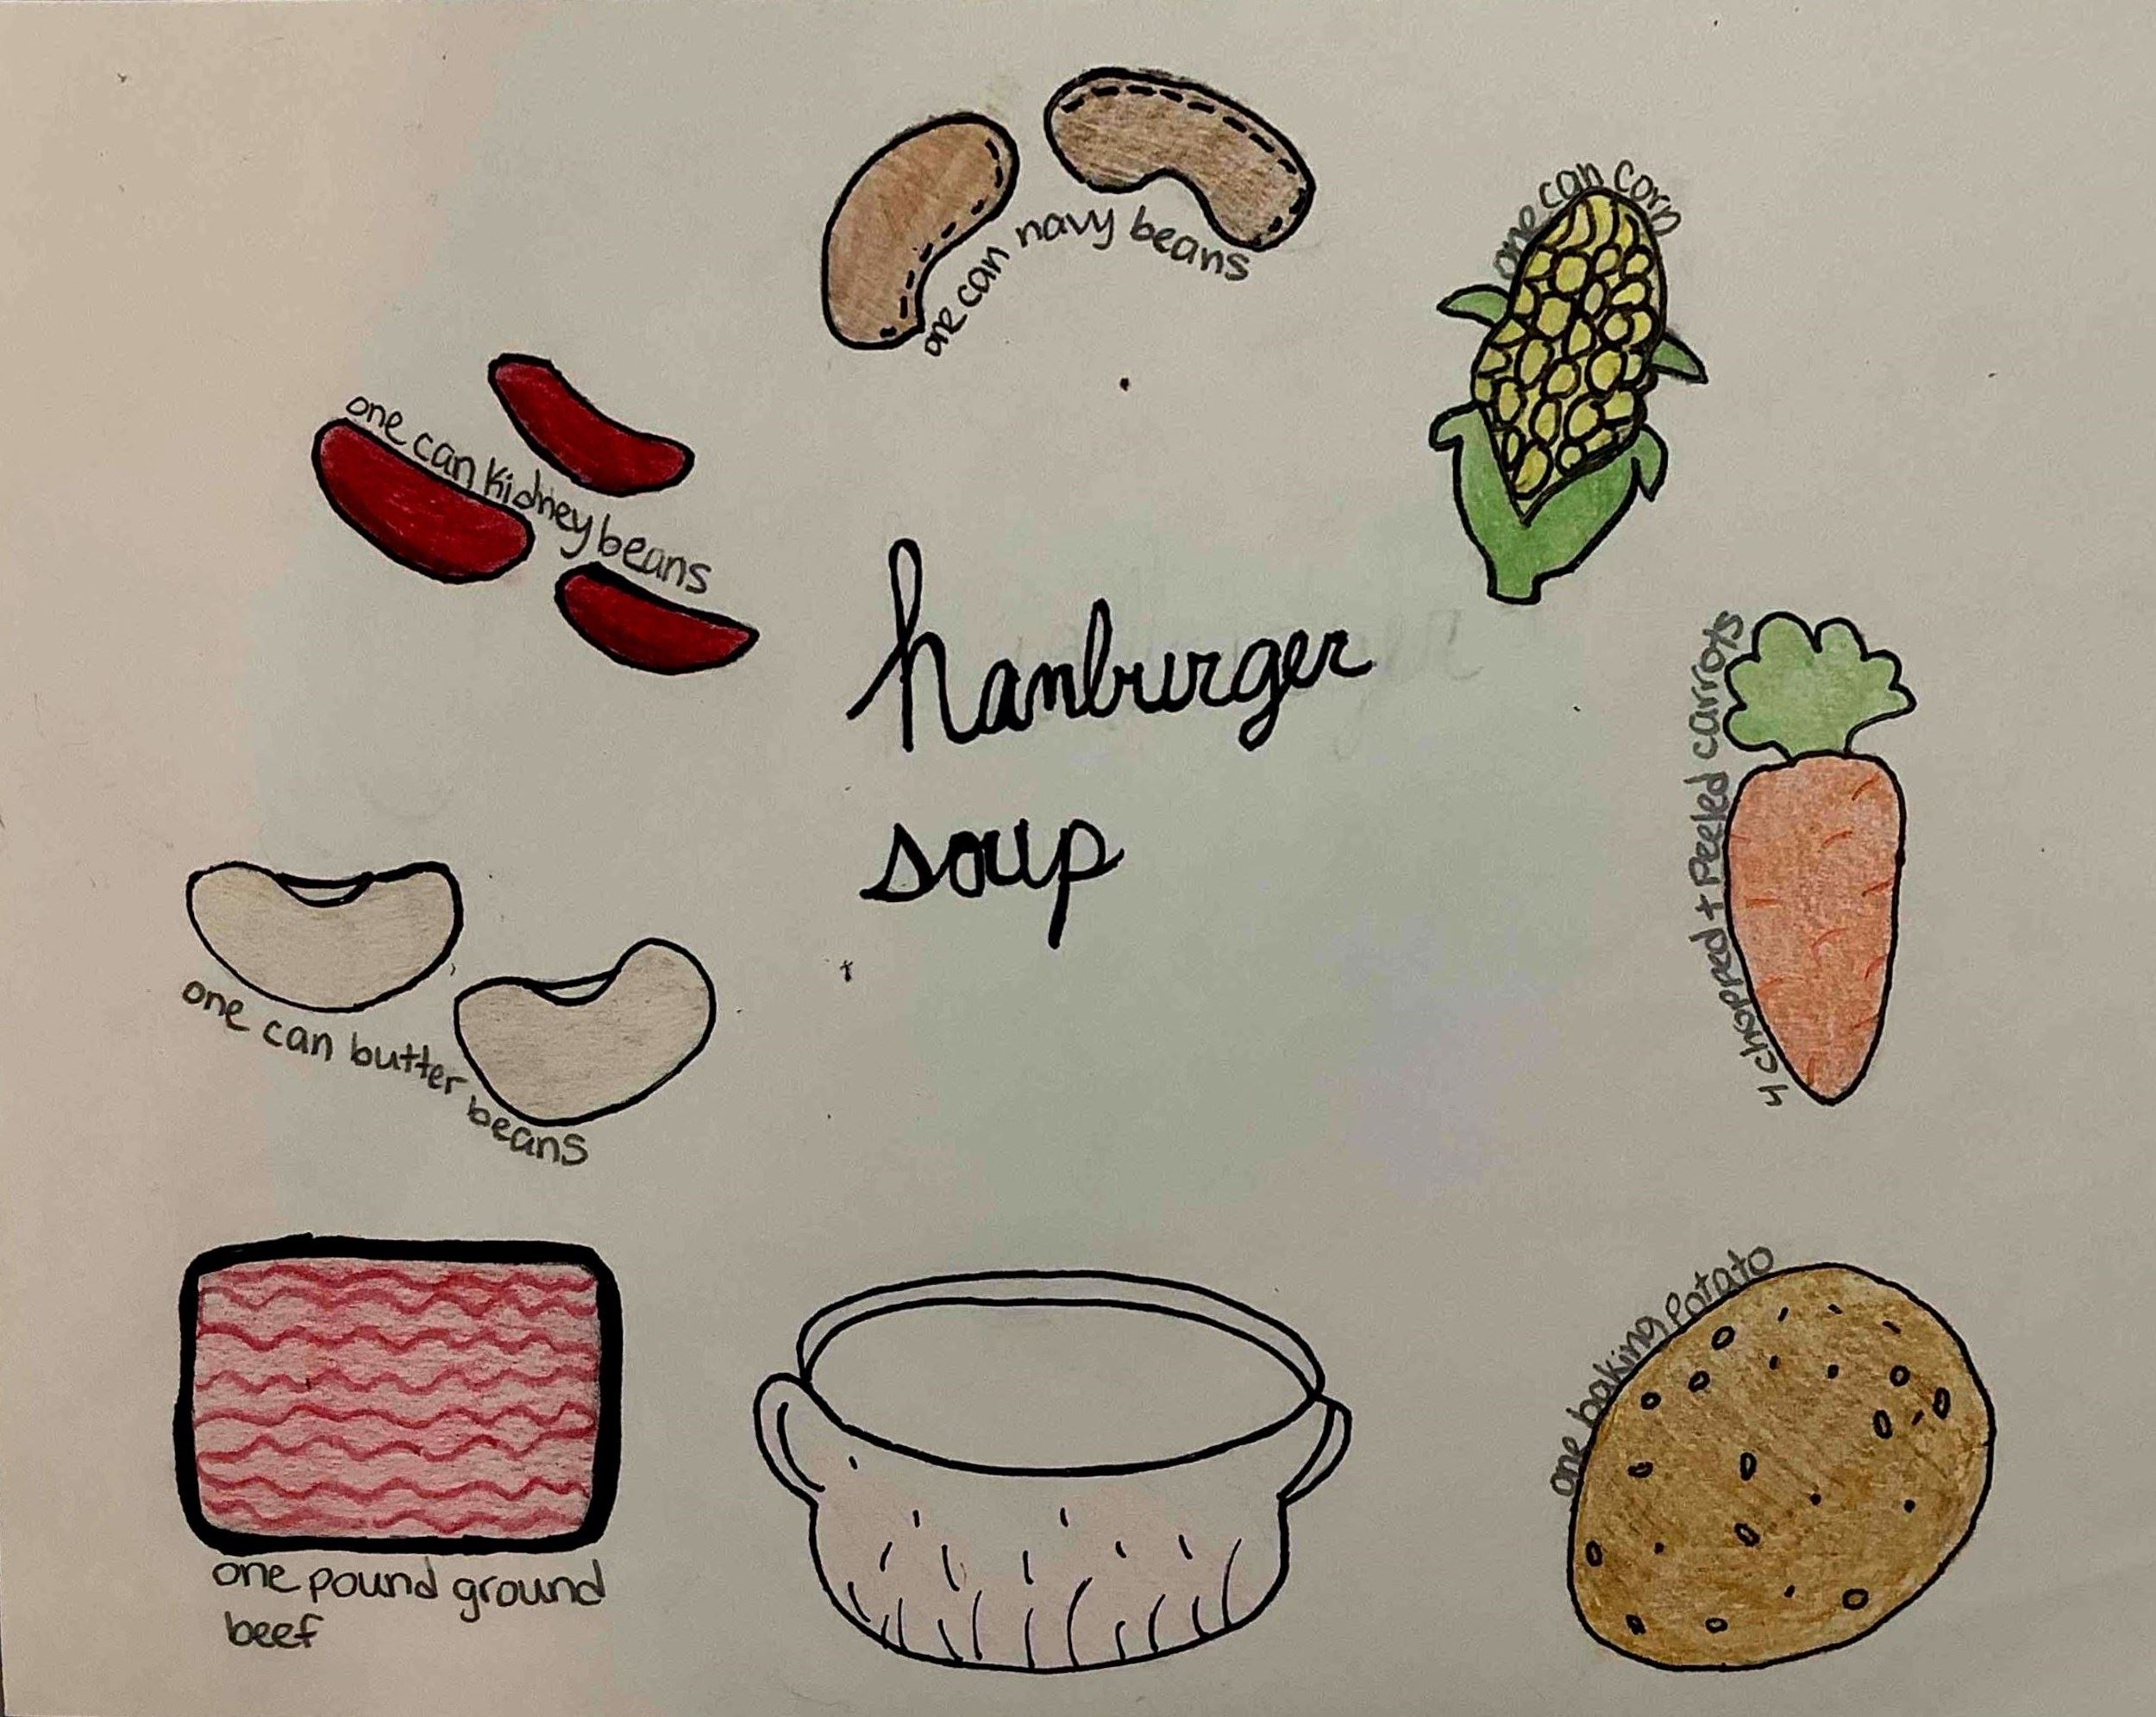 one can navy beans
one can corn
one can kidney beans
hamburger
soup
4 chopped + peeled carrots
one can butter beans
one baking potato
one pound ground
beef